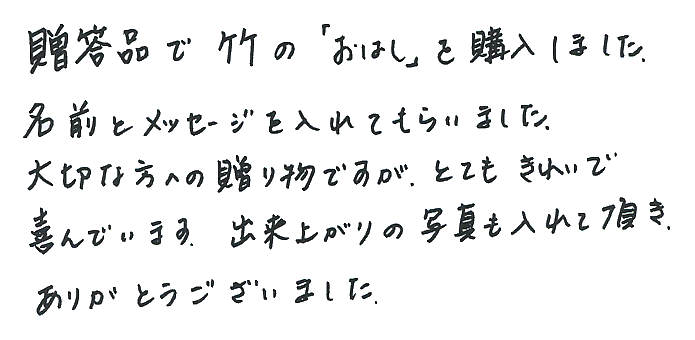 贈答品で竹の「おはし」を購入しました.
名前とメッセージを入れてもらいました.
大切な方への贈り物ですが、とてもきれいで
喜んでいます. 出来上がりの写真も入れて頂き.
ありがとうございました.